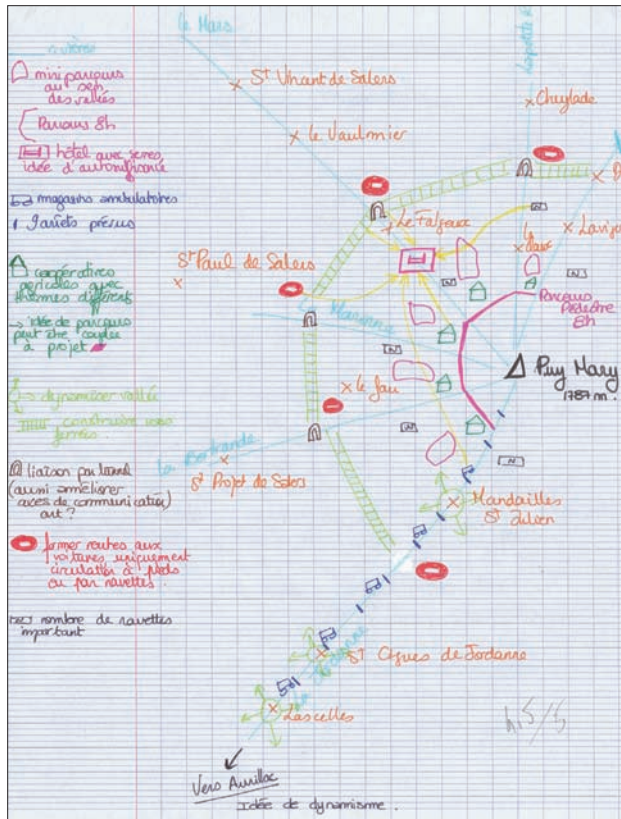 mini parcours
au sein
des vallées
Parcours 8h
hôtel aux serres
idée d'autosuffisance
magasins ambulatoires
coopératives
agricoles avec
thèmes différents
→ idée de parcours
peut être couplée
à projet
→ dynamiser vallée
construire voies
ferrées
liaison par tunnel
(aussi améliorer
axes de communication)
art ?
fermer routes aux
voitures uniquement
circulation à pieds
ou par navettes.
nombre de navettes
important
le Mars
St Vincent de Salers
le Vaulmier
Cheylade
Le Falgoux
H
St Paul de Salers
La Maronne
Parcours
Pédestre
8h
Puy Mary
1787 m.
le Fau
La Bertrande
St Projet de Salers
Mandailles
St Julien
St Cirgues de Jordanne
La Jordanne
Lascelles
4,5/5
Vers Aurillac
Idée de dynamisme.